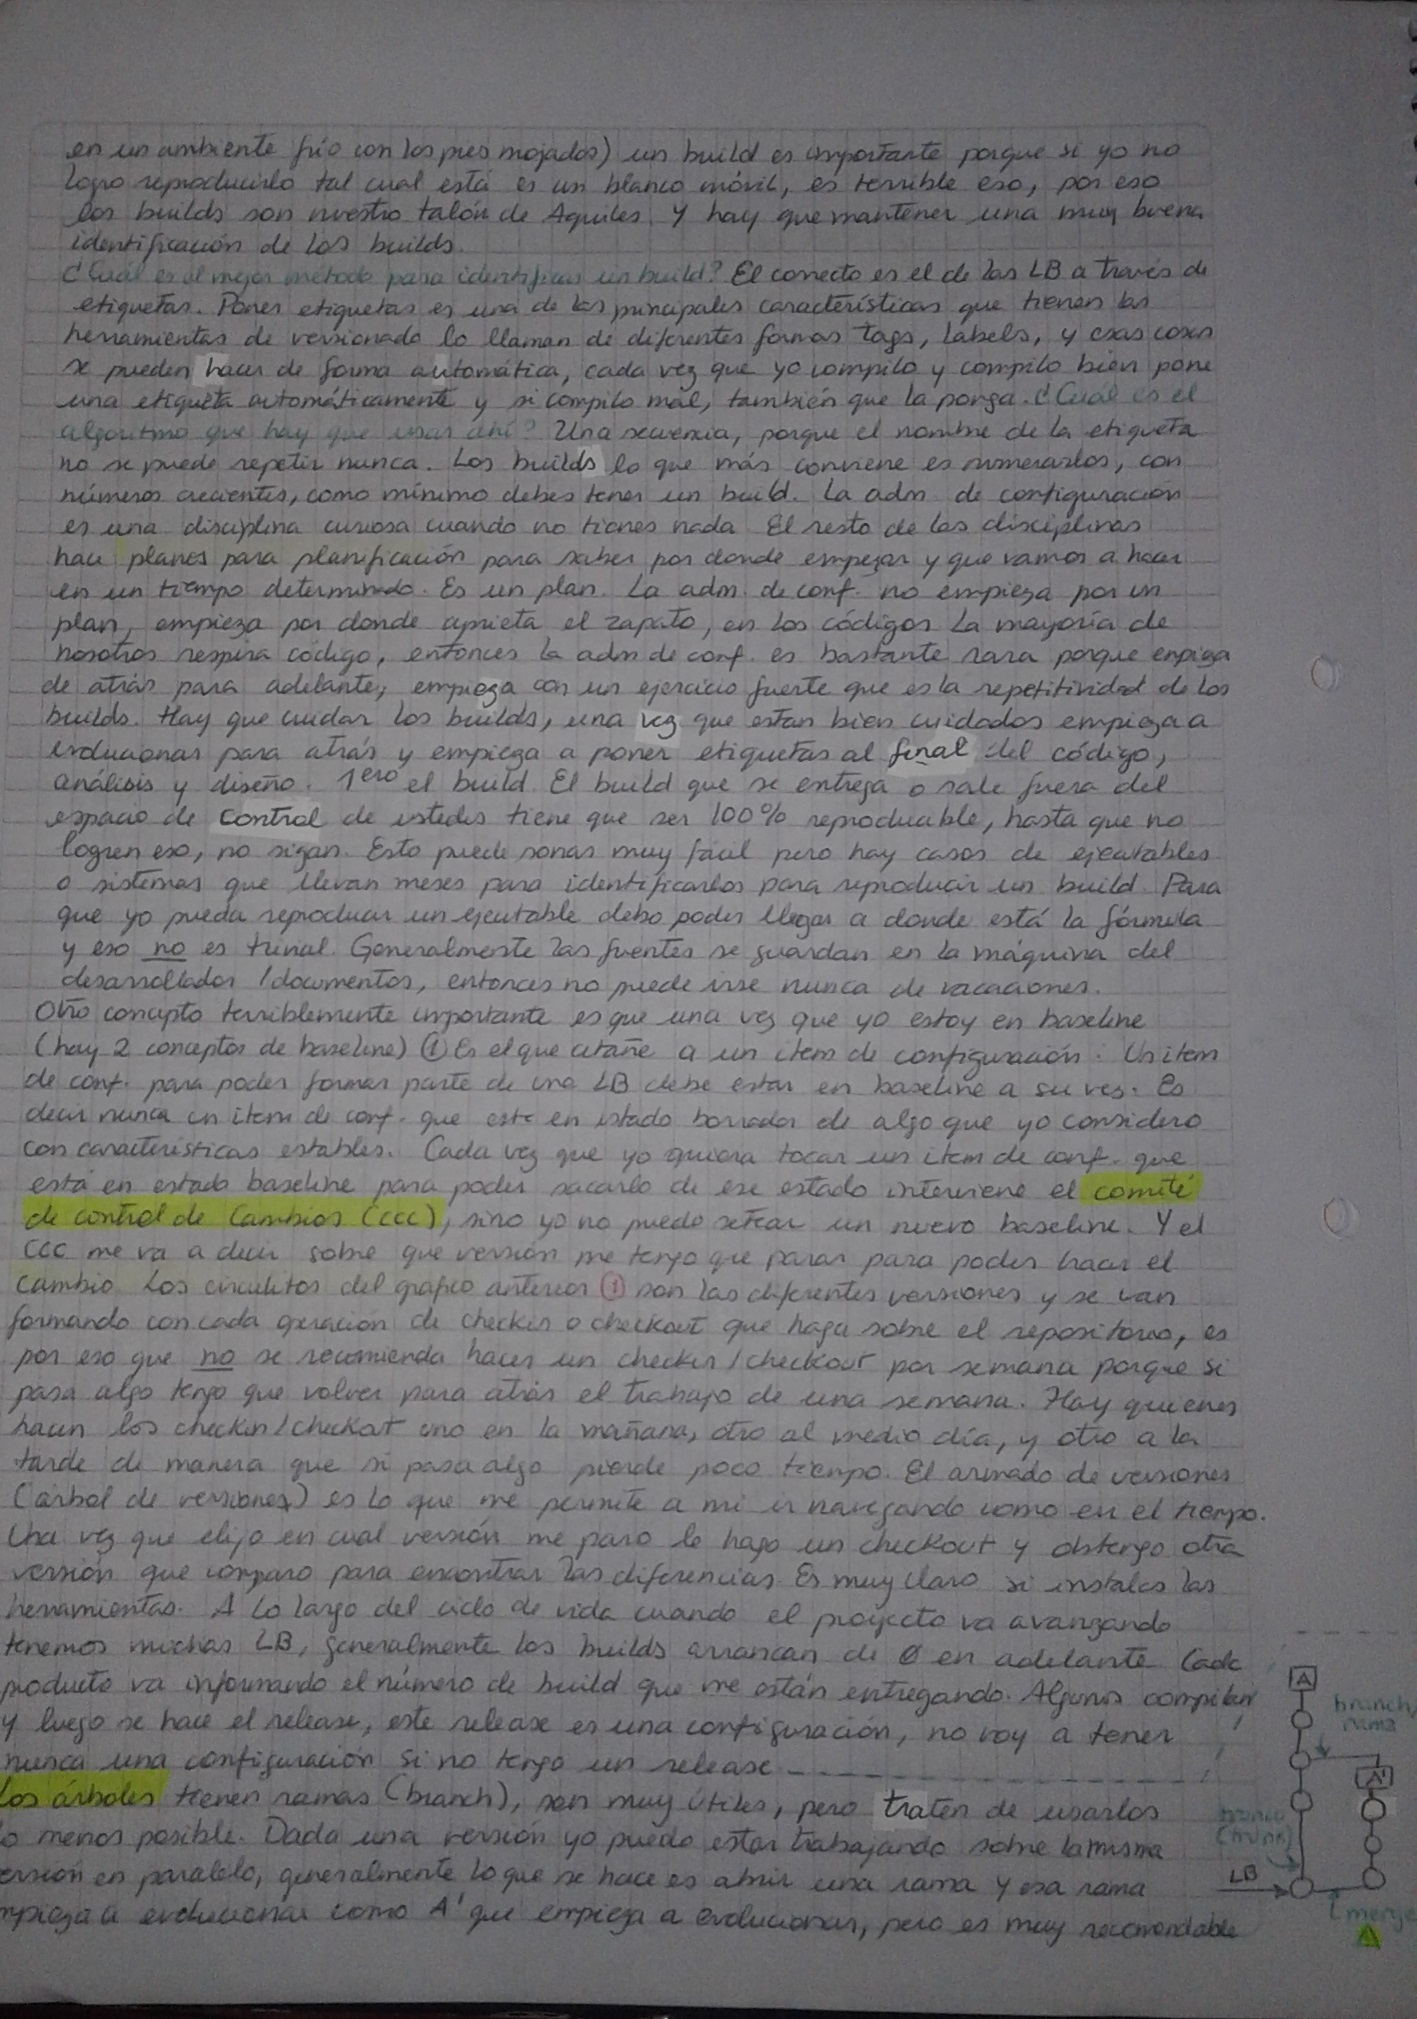 en un ambiente frío con los pies mojados) un build es importante porque si yo no
logro reproducirlo tal cual está es un blanco móvil, es terrible eso, por eso
los builds son nuestro talón de Aquiles. Y hay que mantener una muy buena
identificación de los builds.
¿Cuál es el mejor método para identificar un build? El correcto es el de las LB a través de
etiquetas. Poner etiquetas es una de las principales características que tienen las
herramientas de versionado lo llaman de diferentes formas tags, labels, y esas cosas
se pueden hacer de forma automática, cada vez que yo compilo y compilo bien pone
una etiqueta automáticamente y si compilo mal, también que la ponga. ¿Cuál es el
algoritmo que hay que usar ahí? Una secuencia, porque el nombre de la etiqueta
no se puede repetir nunca. Los builds lo que más conviene es numerarlos, con
números crecientes, como mínimo debes tener un build. La adm de configuración
es una disciplina curiosa cuando no tienes nada El resto de las disciplinas
hace planes para planificación para saber por donde empezar y que vamos a hacer
en un tiempo determinado. Es un plan. La adm. de conf. no empieza por un
plan, empieza por donde aprieta el zapato, en los códigos La mayoría de
nosotros respira código, entonces la adm de conf. es bastante rara porque empieza
de atrás para adelante, empieza con un ejercicio fuerte que es la repetitividad de los
builds. Hay que cuidar los builds, una vez que estan bien cuidados empieza a
evolucionar para atrás y empieza a poner etiquetas al final del código,
análisis y diseño. 1ero el build. El build que se entrega o sale fuera del
espacio de control de ustedes tiene que ser 100% reproducible, hasta que no
logren eso, no sigan. Esto puede sonar muy fácil pero hay casos de ejecutables
o sistemas que llevan meses para identificarlos para reproducir un build. Para
que yo pueda reproducir un ejecutable debo poder llegar a donde está la fórmula
y eso no es trivial. Generalmente las fuentes se guardan en la máquina del
desarrollador /documentos, entonces no puede irse nunca de vacaciones.
Otro concepto terriblemente importante es que una vez que yo estoy en baseline
(hay 2 conceptos de baseline) ① Es el que atañe a un item de configuración: Un item
de conf. para poder formar parte de una LB debe estar en baseline a su vez. Es
decir nunca un item de conf. que este en estado borrador de algo que yo considero
con características estables. Cada vez que yo quiera tocar un item de conf. que
está en estado baseline para poder sacarlo de ese estado interviene el comité
de control de Cambios (CCC), sino yo no puedo setear un nuevo baseline. Y el
CCC me va a decir sobre que versión me tengo que parar para poder hacer el
cambio. Los circulitos del grafico anterior ① son las diferentes versiones y se van
formando con cada operación de checkin o checkout que haga sobre el repositorio, es
por eso que no se recomienda hacer un checkin/checkout por semana porque si
pasa algo tengo que volver para atrás el trabajo de una semana. Hay quienes
hacen los checkin/checkout uno en la mañana, otro al medio día, y otro a la
tarde de manera que si pasa algo pierde poco tiempo. El armado de versiones
(árbol de versiones) es lo que me permite a mi ir navegando como en el tiempo.
Una vez que elijo en cual versión me paro le hago un checkout y obtengo otra
versión que comparo para encontrar las diferencias. Es muy claro si instalas las
herramientas. A lo largo del ciclo de vida cuando el proyecto va avanzando
tenemos muchas LB, generalmente los builds arrancan de 0 en adelante. Cada
producto va informando el número de build que me están entregando. Algunos compilan
y luego se hace el release, este release es una configuración, no voy a tener
nunca una configuración si no tengo un release
Los árboles tienen ramas (branch), son muy útiles, pero traten de usarlos
lo menos posible. Dada una versión yo puedo estar trabajando sobre la misma
versión en paralelo, generalmente lo que se hace es abrir una rama y esa rama
empieza a evolucionar como A' que empieza a evolucionar, pero es muy recomendable
A
branch/
rama
A'
tronco
(trunk)
LB
merge